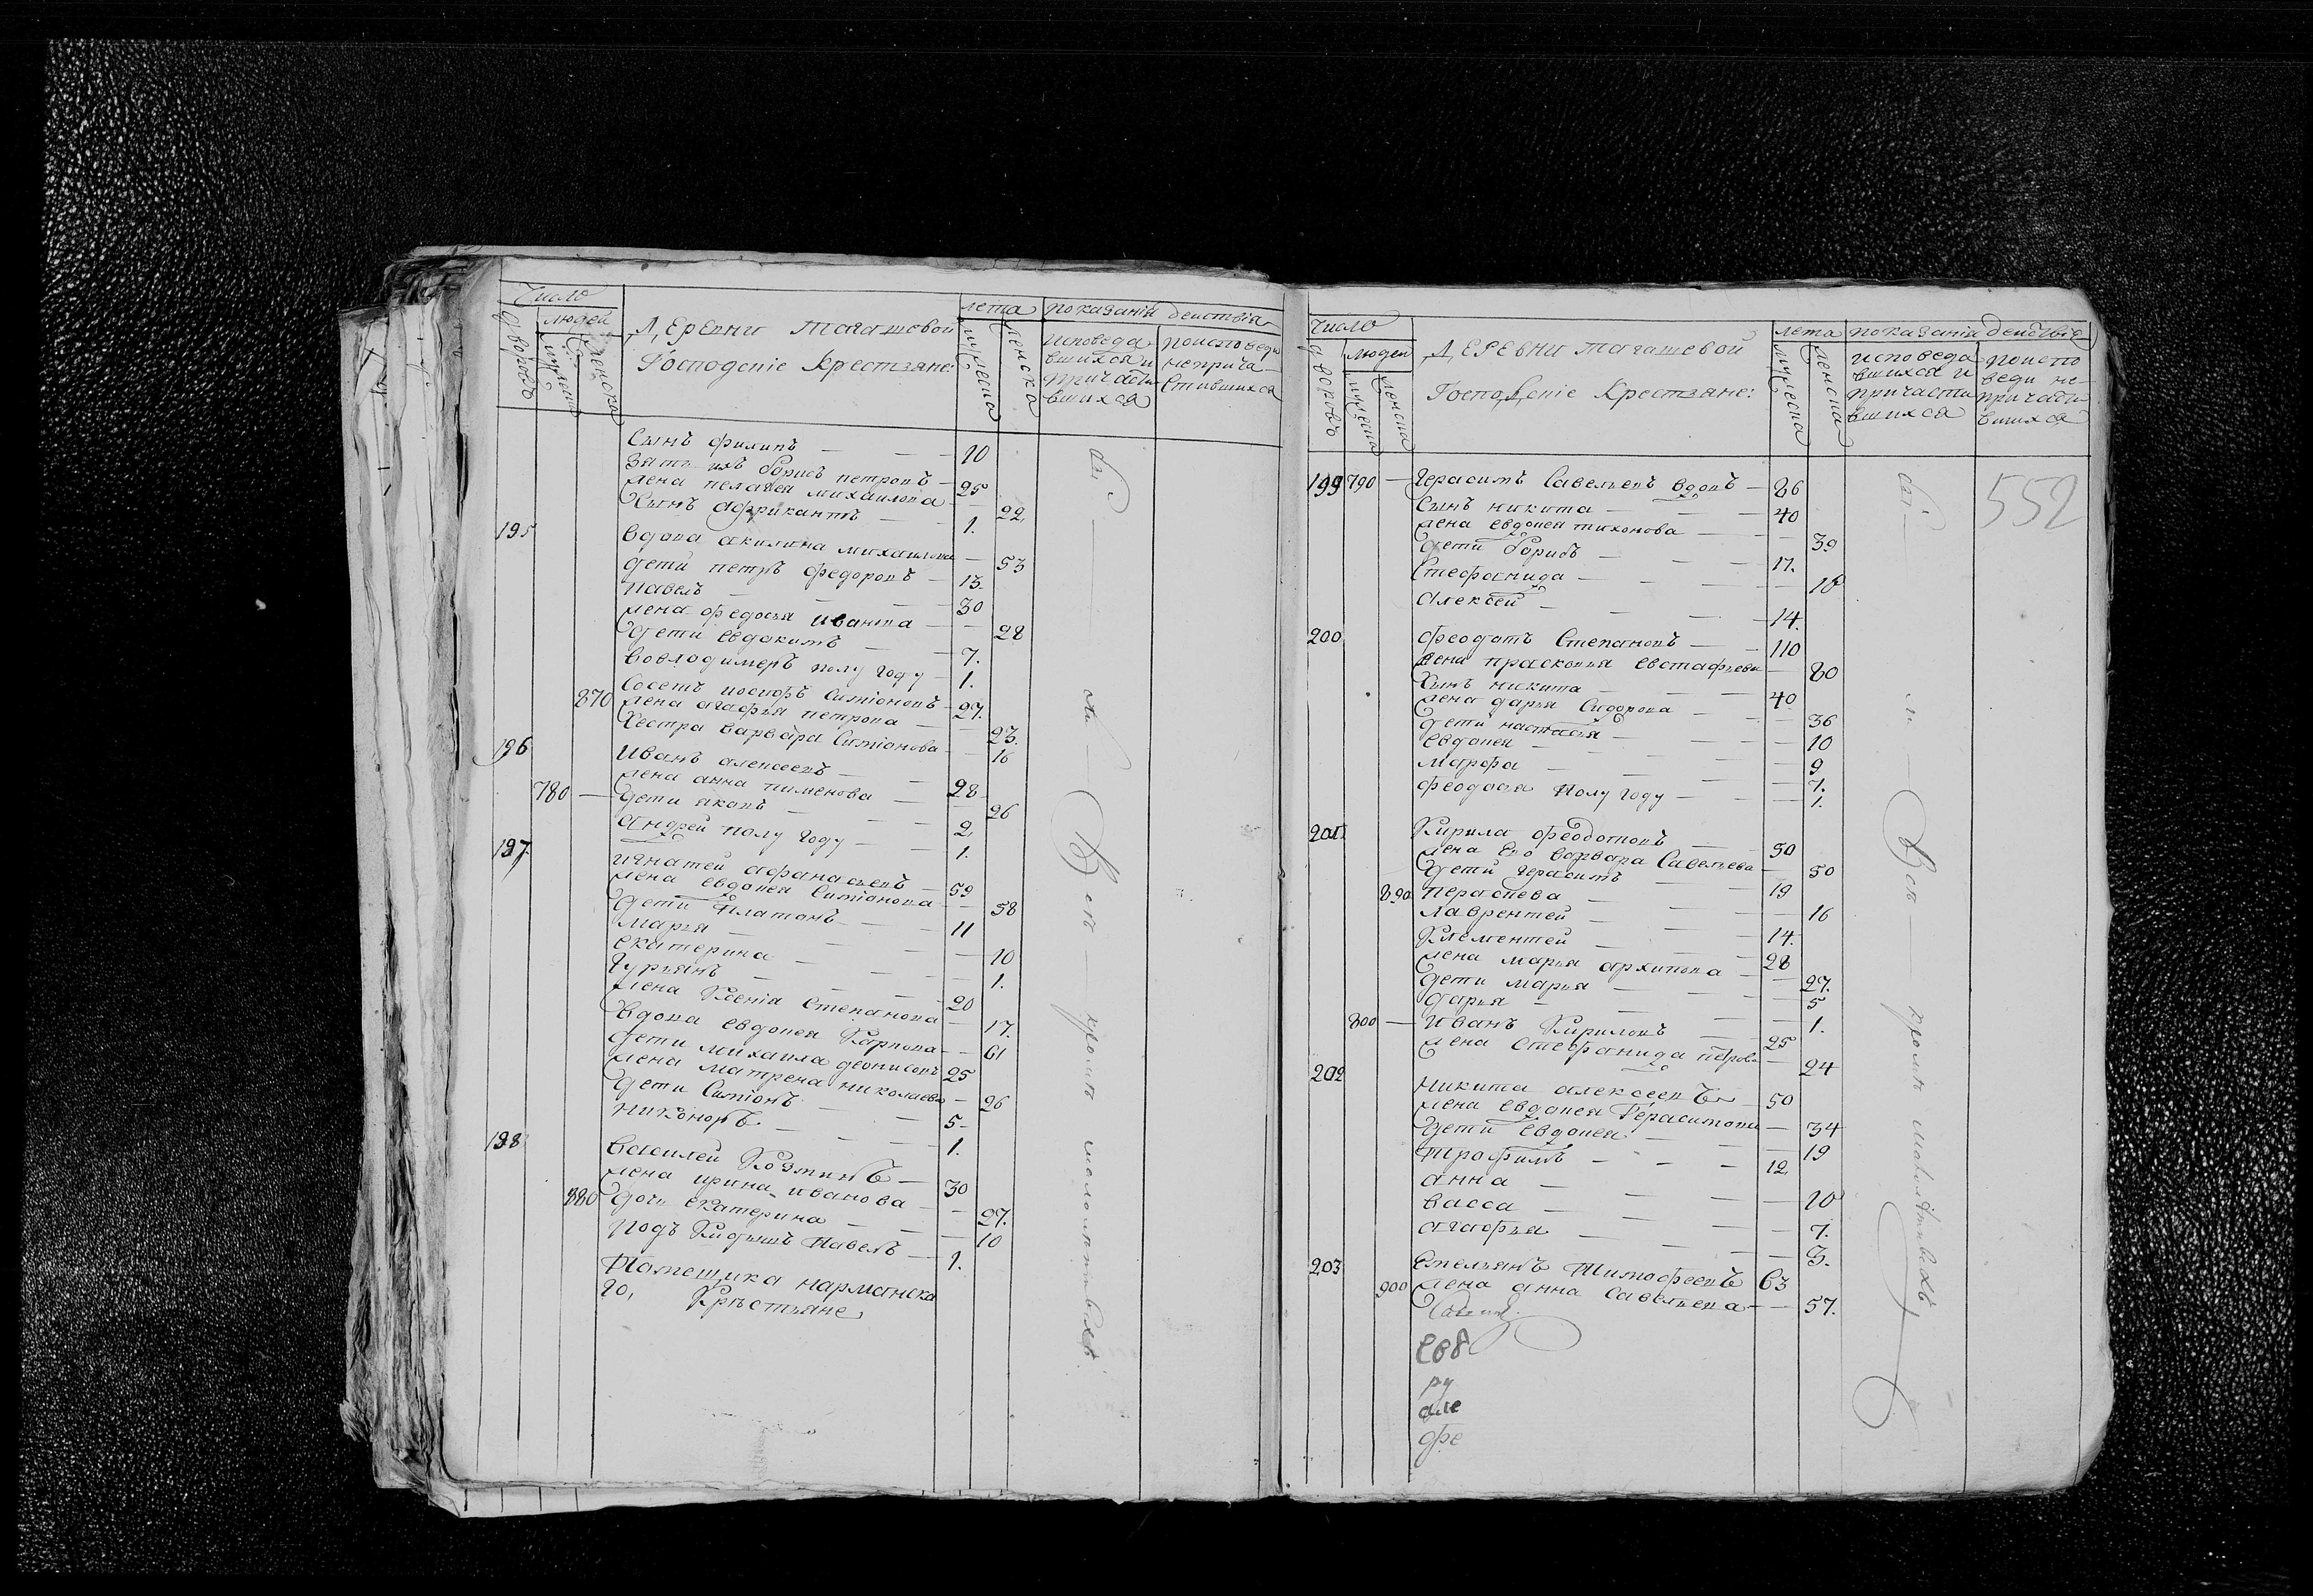 Число
дворовъ
людей
мужеска
женска
Деревни Тагашевой
Господскіе крестьяне:
лета
мужеска
женска
показаніи действія
исповеда
вшихся и
причасти
вшихся
поисповеди
неприча
стившихся
Сынъ филипъ — — — 10
Зять ихъ борисъ петровъ — 25
жена пелагея михаилова — 22
Сынъ африкантъ — — 1.
195 вдова акилина михаилова — 53
дети петръ федоровъ — 13
павелъ — — — 30
жена федосья иванова — — 28
дети евдокимъ — — 7.
вовлодимеръ полу году — 1.
Сосетъ иосифъ Симіоновъ — 27.
870 жена агафья петрова — — 23.
Сестра варвара Симіонова — 16
196 Иванъ алексеевъ — — 28
жена анна пименова — — 26
780 — дети яковъ — — — 2
андрей полу году — — 1.
197 игнатей афанасьевъ — 59
жена евдокея Симіонова — 58
дети Платонъ — — — 11
марья — — — 10
екатерина — — — 1.
Гурьянъ — — — 20
жена Ксенія Степанова — 17.
вдова евдокея Карпова — — 61
дети михаила деонисовъ 25
жена матрена николаева — 26
дети Симіонъ — — 5
никоноръ — — — 1.
198 василей Козминъ — 30
жена ирина иванова — — 27.
880 дочь екатерина — — — 10
подъ Кидышъ Павелъ — 1.
Помещика нарманска
го, Крѣстьяне
Всѣ кроме малолетныхъ
Число
дворовъ
людей
мужеска
женска
Деревни тагашевой
Господскіе Крестьяне:
лета
мужеска
женска
показаніи действіе
исповеда
вшихся и
причасти
вшихся
поиспо
веди не-
причасти
вшихся
552
199 790 — Герасимъ Савельевъ вдовъ — 86
Сынъ никита — — — 40
жена евдокея тихонова — — 39
дети борисъ — — — 17.
Стефанида — — — 18
алексей — — — 14.
200 феодотъ Степановъ — — 110
жена прасковья евстафьева — 80
Сынъ никита — — — 40
жена дарья Сидорова — — 36
дети настасья — — — 10
евдокея — — — 9
марфа — — — 7.
феодосья полу году — — 1.
201 Кирила феодотовъ — — 50
жена его варвара Савельева — 50
дети герасимъ — — 19
890 — — — 16
лаврентей — — — 14.
Клементей — — 28
жена марья архипова — — 27.
дети марья — — — 5
дарья — — — 1.
800 — Иванъ Кириловъ — — 25
жена Стефанида петрова — 24
202 никита алексеевъ — 50
жена евдокея Герасимова — 34
дети евдокея — — 19
трофимъ — — — 12
анна — — — 10
васса — — — 7.
агафья — — — 3.
203 Емельянъ Тимофеевъ 63
900 жена анна Савельева — — 57.
ру
але
фе
Всѣ — кромѣ малолѣтныхъ